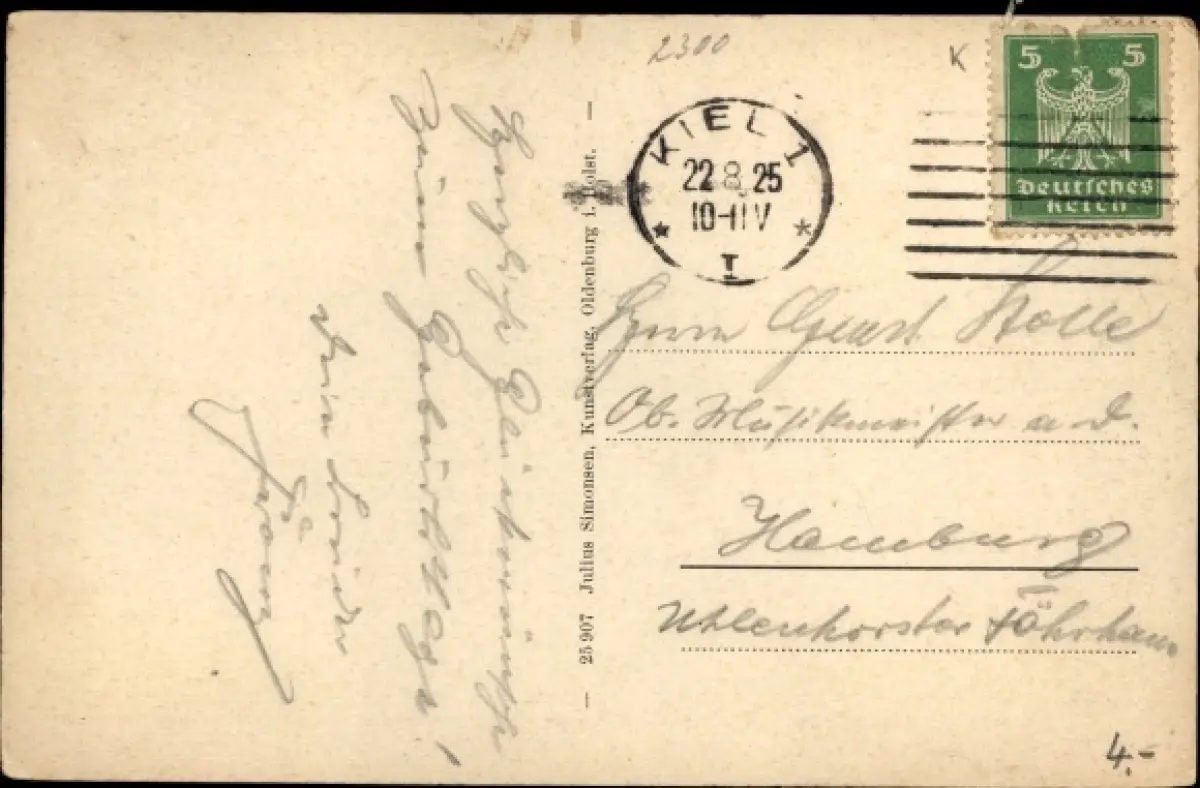 2300
K
5 5
Deutsches
Reich
KIEL 1
22.8.25
10-11 V
* *
I
Herzliche Glückwünsche
zum Geburtstage!
Dein Bruder
Franz
– 25 907 Julius Simonsen, Kunstverlag, Oldenburg i. Holst. –
Herrn Stolle
Ob. Musikmeister a. D.
Hamburg
Uhlenhorster Fährhaus
4.-